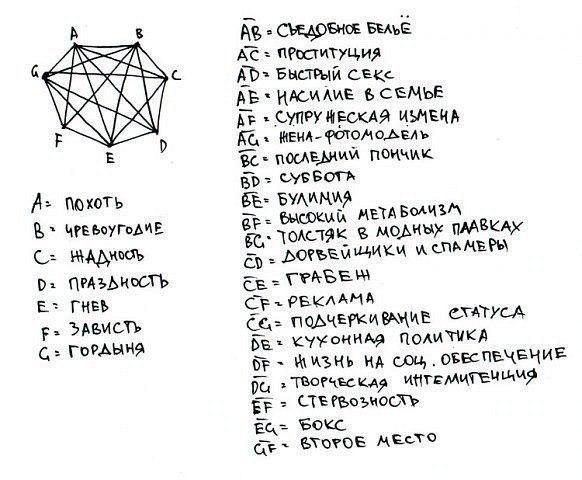 A
B
G
C
F
D
E
A = ПОХОТЬ
B = ЧРЕВОУГОДИЕ
C = ЖАДНОСТЬ
D = ПРАЗДНОСТЬ
E = ГНЕВ
F = ЗАВИСТЬ
G = ГОРДЫНЯ
AB = СЪЕДОБНОЕ БЕЛЬЁ
AC = ПРОСТИТУЦИЯ
AD = БЫСТРЫЙ СЕКС
AE = НАСИЛИЕ В СЕМЬЕ
AF = СУПРУЖЕСКАЯ ИЗМЕНА
AG = ЖЕНА-ФОТОМОДЕЛЬ
BC = ПОСЛЕДНИЙ ПОНЧИК
BD = СУББОТА
BE = БУЛИМИЯ
BF = ВЫСОКИЙ МЕТАБОЛИЗМ
BG = ТОЛСТЯК В МОДНЫХ ПЛАВКАХ
CD = ДОРВЕЙЩИКИ И СПАМЕРЫ
CE = ГРАБЕЖ
CF = РЕКЛАМА
CG = ПОДЧЕРКИВАНИЕ СТАТУСА
DE = КУХОННАЯ ПОЛИТИКА
DF = ЖИЗНЬ НА СОЦ. ОБЕСПЕЧЕНИЕ
DG = ТВОРЧЕСКАЯ ИНТЕЛИГЕНЦИЯ
EF = СТЕРВОЗНОСТЬ
EG = БОКС
GF = ВТОРОЕ МЕСТО